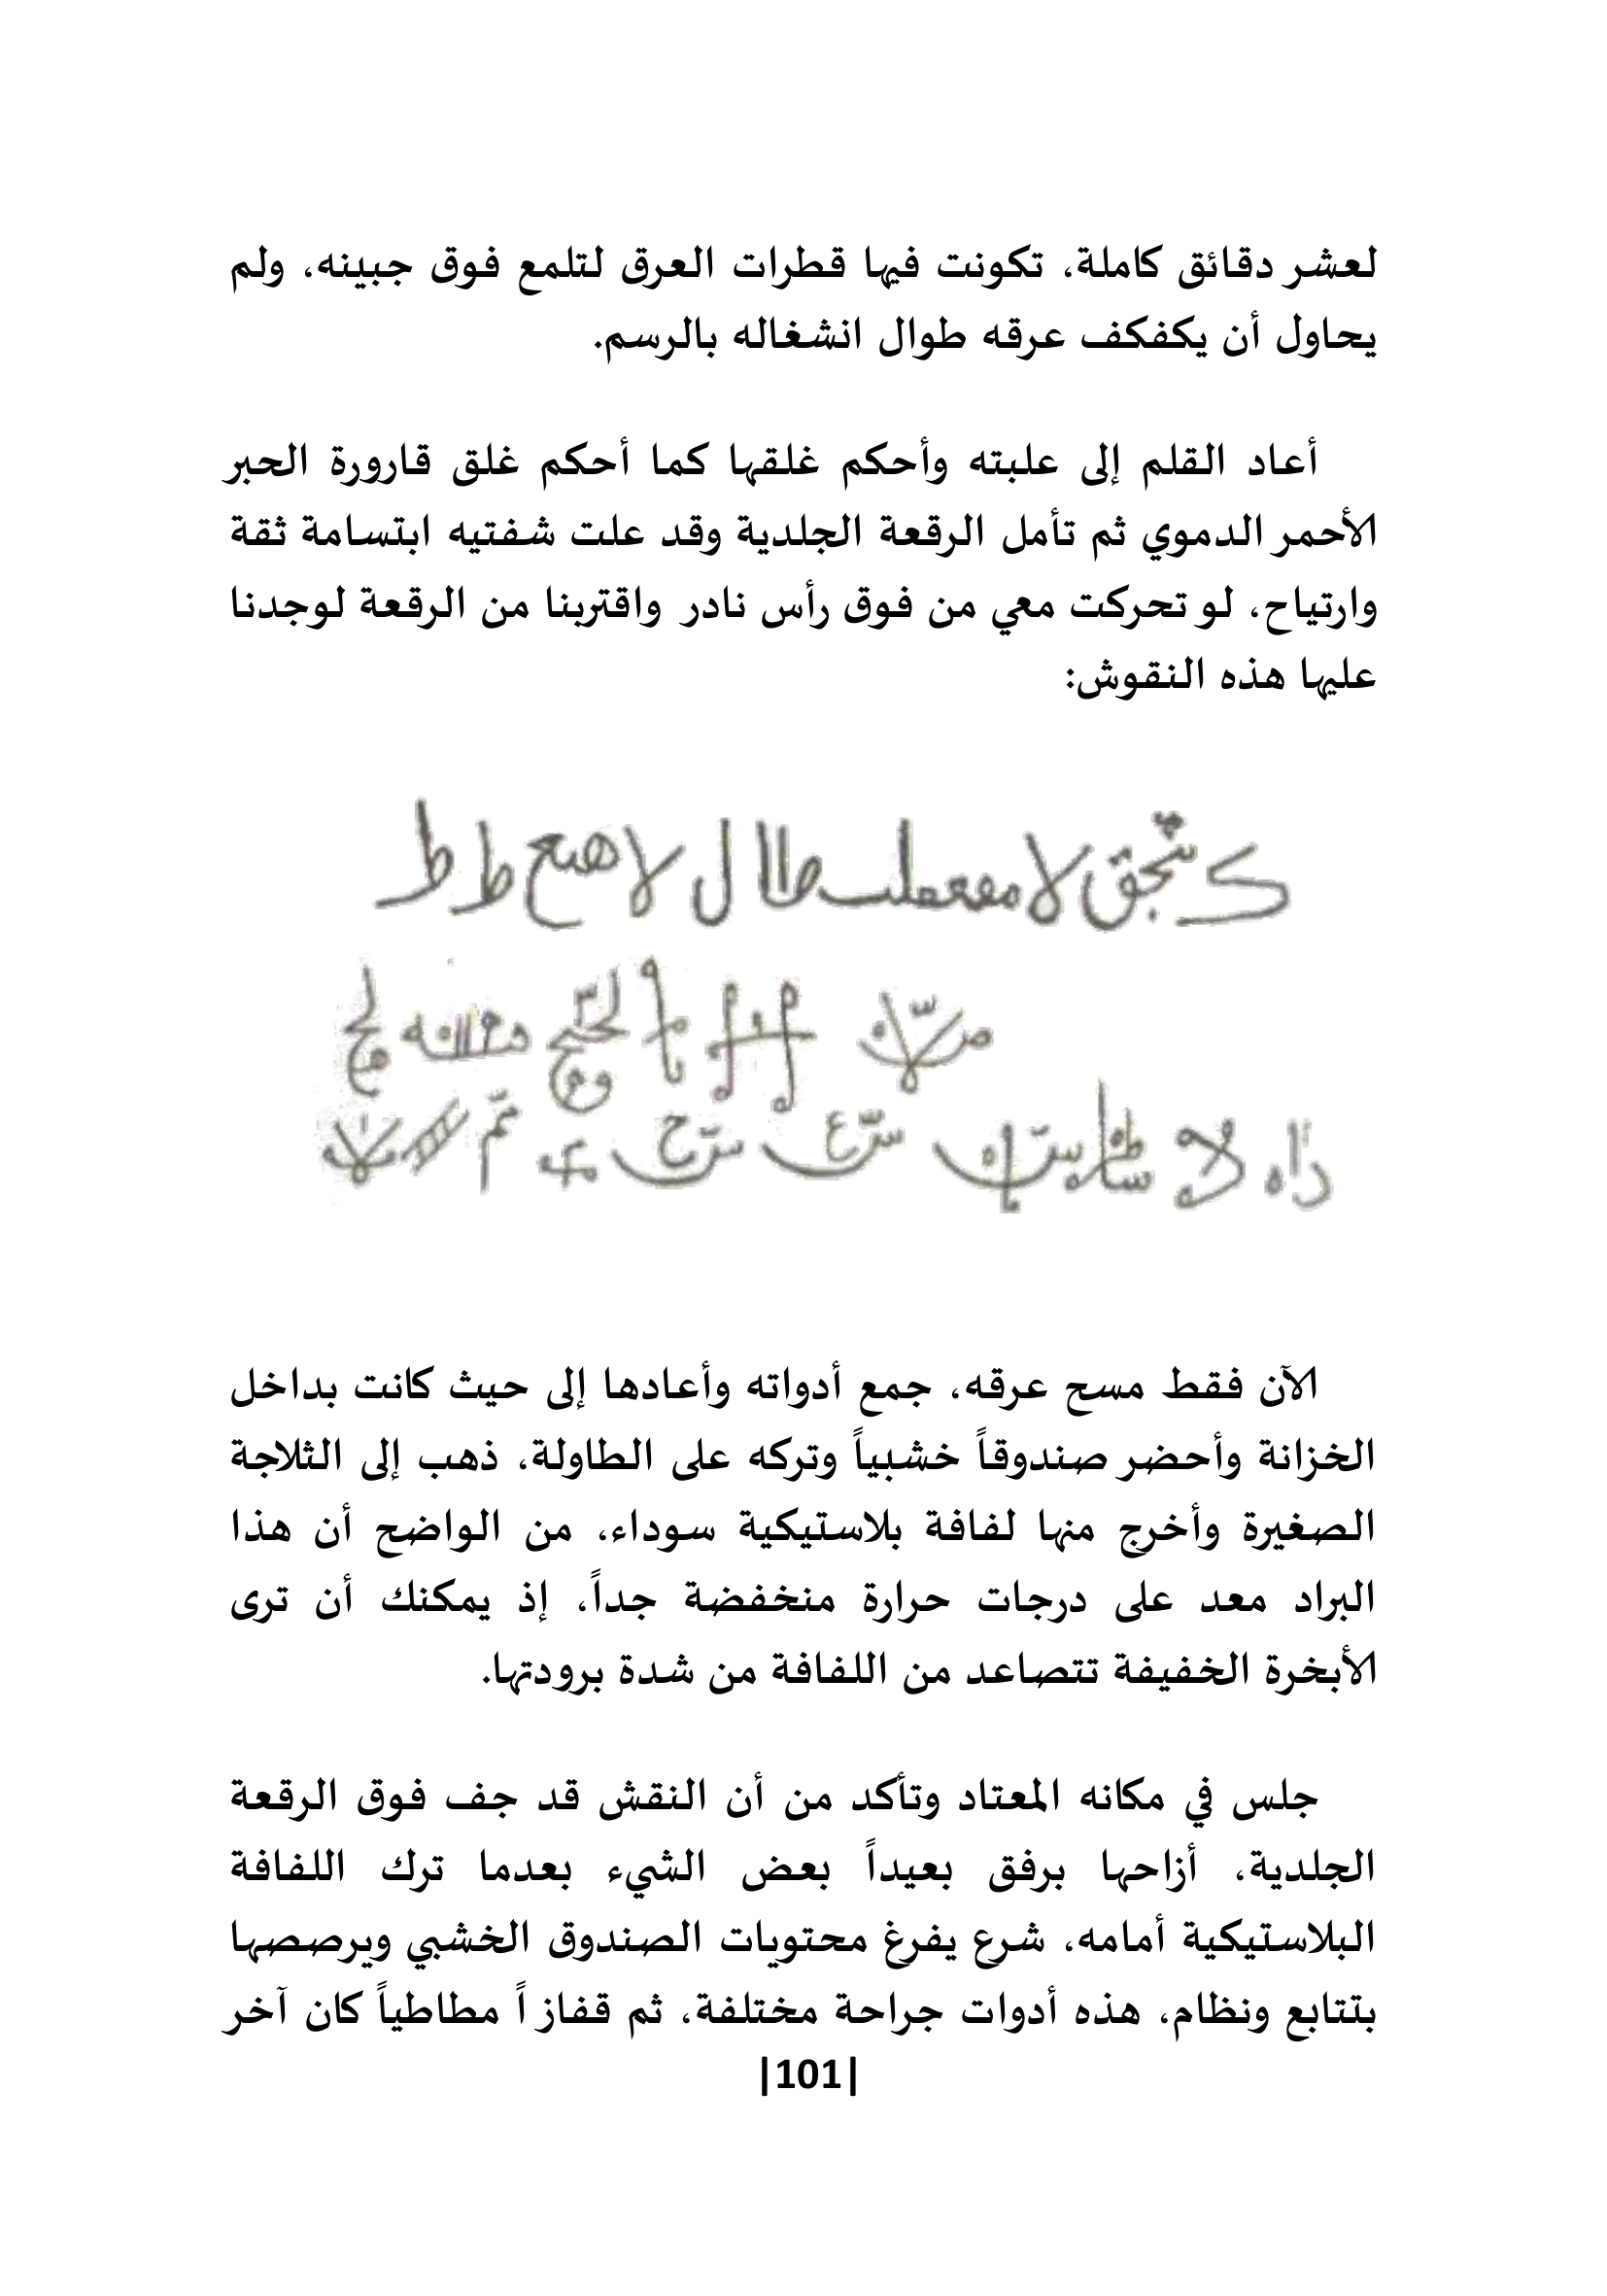 لعشر دقائق كاملة، تكونت فيها قطرات العرق لتلمع فوق جبينه، ولم
يحاول أن يكفكف عرقه طوال انشغاله بالرسم.
أعاد القلم إلى علبته وأحكم غلقها كما أحكم غلق قارورة الحبر
الأحمر الدموي ثم تأمل الرقعة الجلدية وقد علت شفتيه ابتسامة ثقة
وارتياح، لو تحركت معي من فوق رأس نادر واقتربنا من الرقعة لوجدنا
عليها هذه النقوش:
الآن فقط مسح عرقه، جمع أدواته وأعادها إلى حيث كانت بداخل
الخزانة وأحضر صندوقاً خشبياً وتركه على الطاولة، ذهب إلى الثلاجة
الصغيرة وأخرج منها لفافة بلاستيكية سوداء، من الواضح أن هذا
البراد معد على درجات حرارة منخفضة جداً، إذ يمكنك أن ترى
الأبخرة الخفيفة تتصاعد من اللفافة من شدة برودتها.
جلس في مكانه المعتاد وتأكد من أن النقش قد جف فوق الرقعة
الجلدية، أزاحها برفق بعيداً بعض الشيء بعدما ترك اللفافة
البلاستيكية أمامه، شرع يفرغ محتويات الصندوق الخشبي ويرصصها
بتتابع ونظام، هذه أدوات جراحة مختلفة، ثم قفاز اً مطاطياً كان آخر
|101|